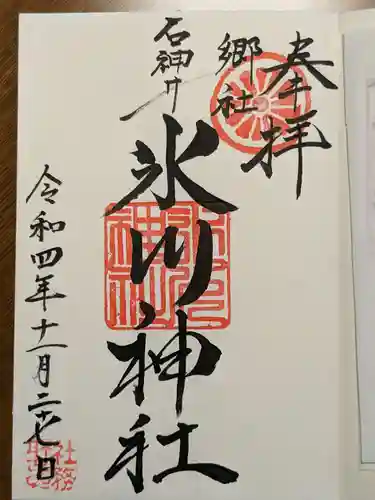 奉拝
郷社
石神井
氷川神社
令和四年十一月二十七日
氷川神社
社務